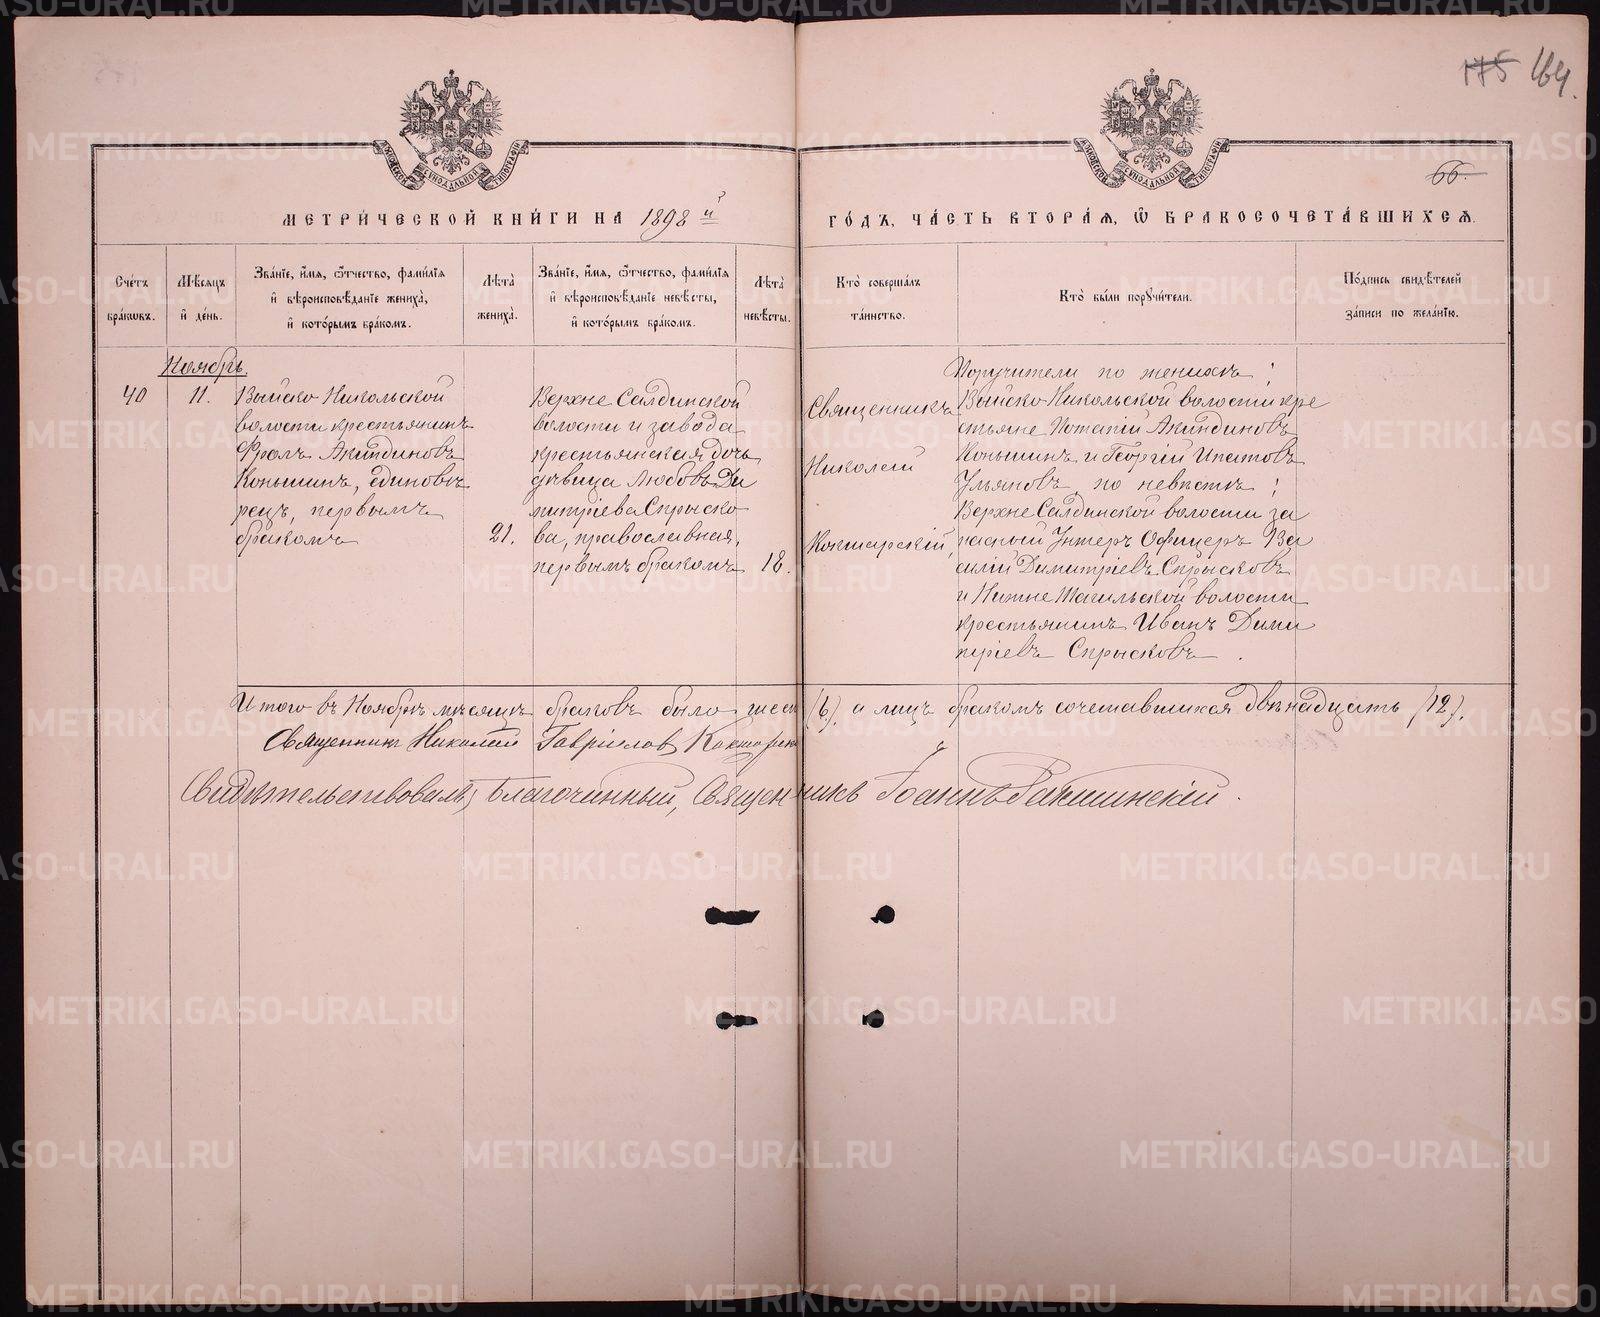 175 164.
66.
МЕТРИЧЕСКОЙ КНИГИ НА 1898 й
ГОДЪ, ЧАСТЬ ВТОРАЯ, Ѡ БРАКОСОЧЕТАВШИХСЯ.
Счетъ браковъ.
Мѣсяцъ и день.
Званіе, имя, ѿчество, фамилія и вѣроисповѣданіе жениха, и которымъ бракомъ.
Лѣта жениха.
Званіе, имя, ѿчество, фамилія и вѣроисповѣданіе невѣсты, и которымъ бракомъ.
Лѣта невѣсты.
Кто совершалъ таинство.
Кто были поручители.
Подпись свидѣтелей записи по желанію.
Ноябрь.
40
11.
Выйско-Никольской
волости крестьянинъ
Фролъ Акиндиновъ
Коньшинъ, единовѣ
рецъ, первымъ
бракомъ
21.
Верхне Салдинской
волости и завода
крестьянская дочь
дѣвица Любовь Ди
митріева Спрыско
ва, православная,
первымъ бракомъ
18.
Священникъ
Николай
Кокшарскій,
Поручители по женихѣ:
Выйско-Никольской волости кре
стьяне Потапій Акиндиновъ
Коньшинъ и Георгій Ипатовъ
Ульяновъ, по невѣстѣ:
Верхне Салдинской волости за
пасный Унтеръ Офицеръ Ва
силій Димитріевъ Спрысковъ
и Нижне Тагильской волости
крестьянинъ Иванъ Дими
тріевъ Спрысковъ.
Итого въ Ноябрѣ мѣсяцѣ браковъ было шесть (6), а лицъ бракомъ сочетавшихся двѣнадцать (12).
Священникъ Николай Гавріиловъ Кокшарскій
Свидѣтельствовалъ, Благочинный, Священникъ Іоаннъ